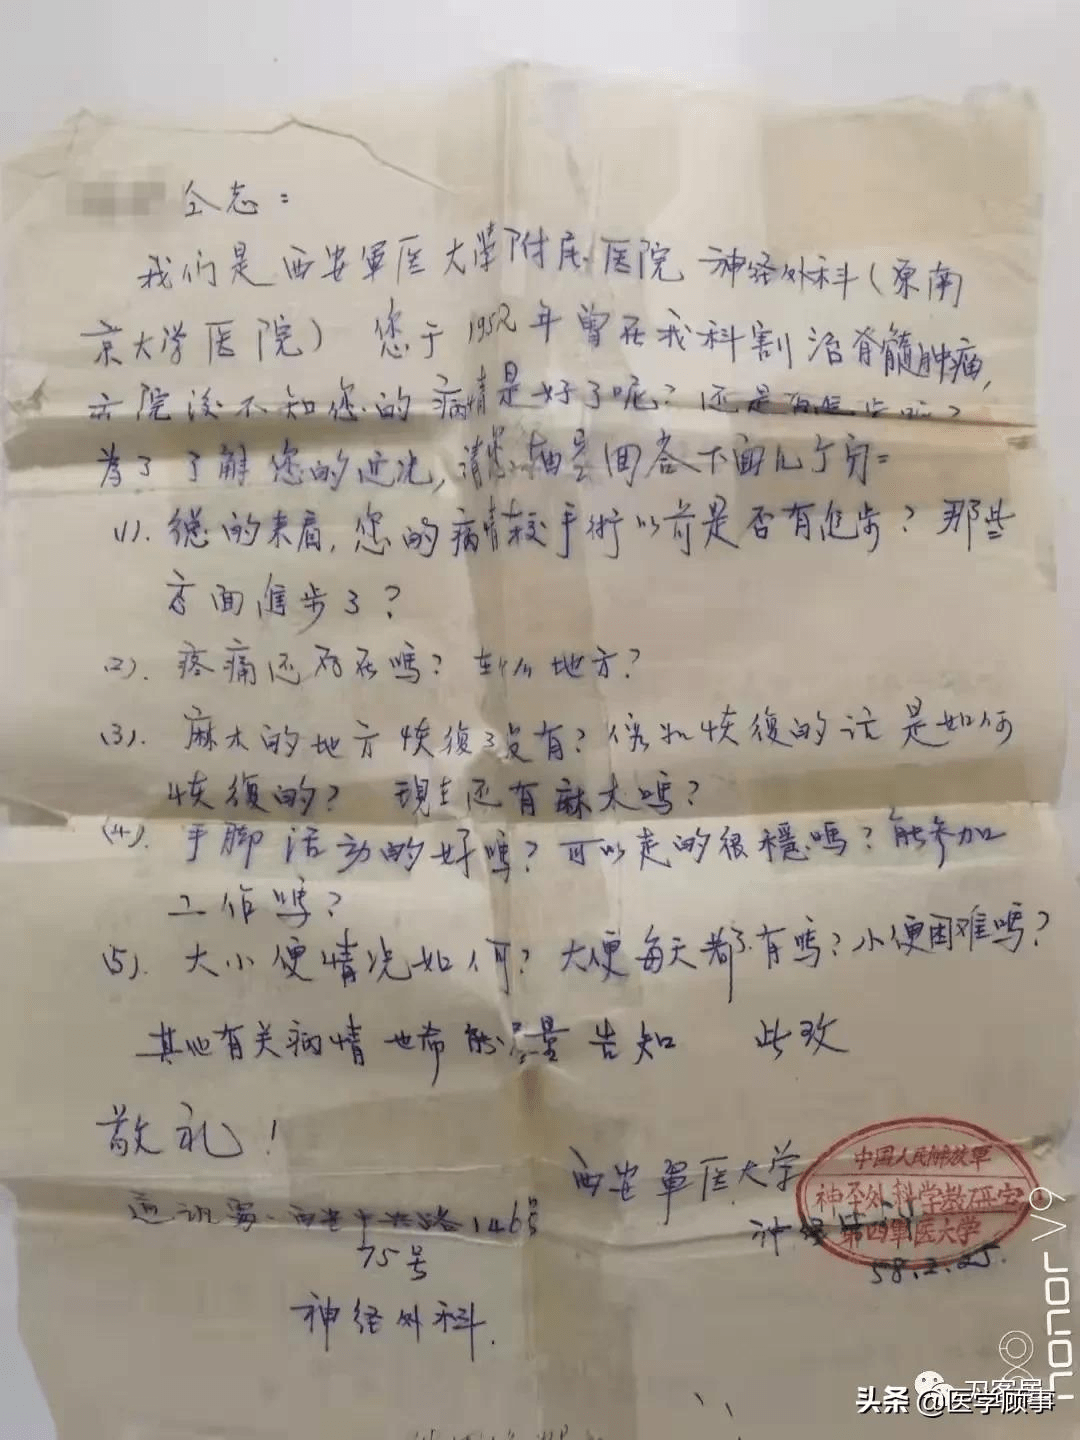 仝志：
我们是西安軍医大学附属医院神经外科（原南
京大学医院）您于1952年曾在我科割治脊髓肿瘤，
出院後不知您的病情是好了呢？还是
為了了解您的近况，請您抽空回答下面几个问：
(1). 總的来看，您的病情较手術以前是否有進步？那些
方面進步了？
(2). 疼痛还存在嗎？在什么地方？
(3). 麻木的地方恢復了没有？恢復的话是如何
恢復的？現在还有麻木嗎？
(4). 手脚活动的好嗎？可以走的很穩嗎？能参加
工作嗎？
(5). 大小便情况如何？大便每天都有嗎？小便困难嗎？
其他有关病情也希能尽量告知 此致
敬礼！
西安軍医大学
神经
58.2.25.
通讯处：西安 路146号
75号
神经外科.
中国人民解放軍
神圣外科学教研室
第四軍医大学
honor V9
头条@医学顾事